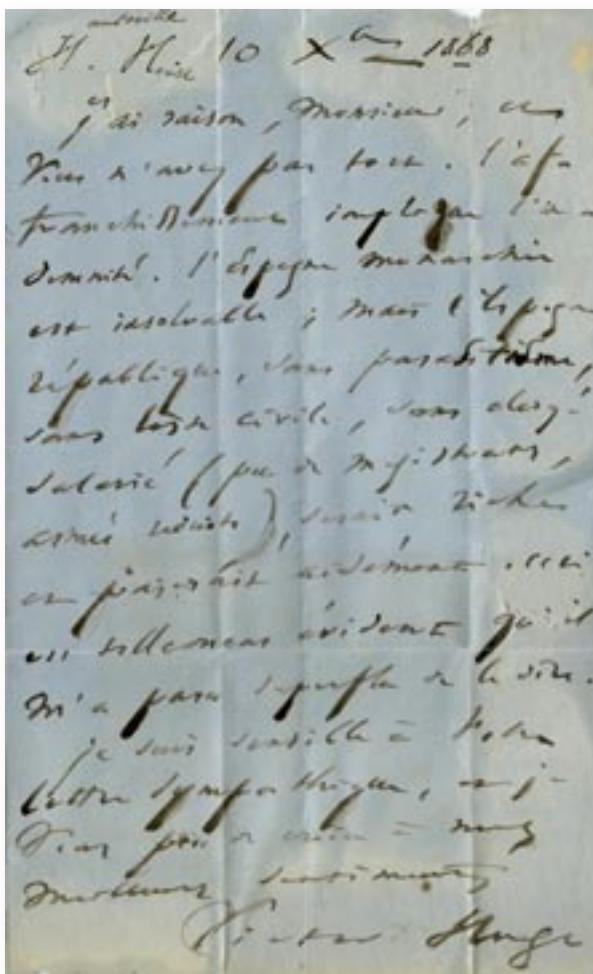 hauteville
H. House 10 Xbre 1868
j'ai raison, Monsieur, et
Vous n'avez pas tort. l'af-
franchissement implique l'in-
demnité. l'Espagne monarchie
est insolvable ; mais l'Espagne
république, sans parasitisme,
sans liste civile, sans clergé
salarié (peu de magistrats,
armée réduite), serait riche
et paierait aisément. ceci
est tellement évident qu'il
m'a paru superflu de le dire.
je suis sensible à Votre
lettre sympathique, et je
Vous prie de croire à mes
meilleurs sentiments
Victor Hugo